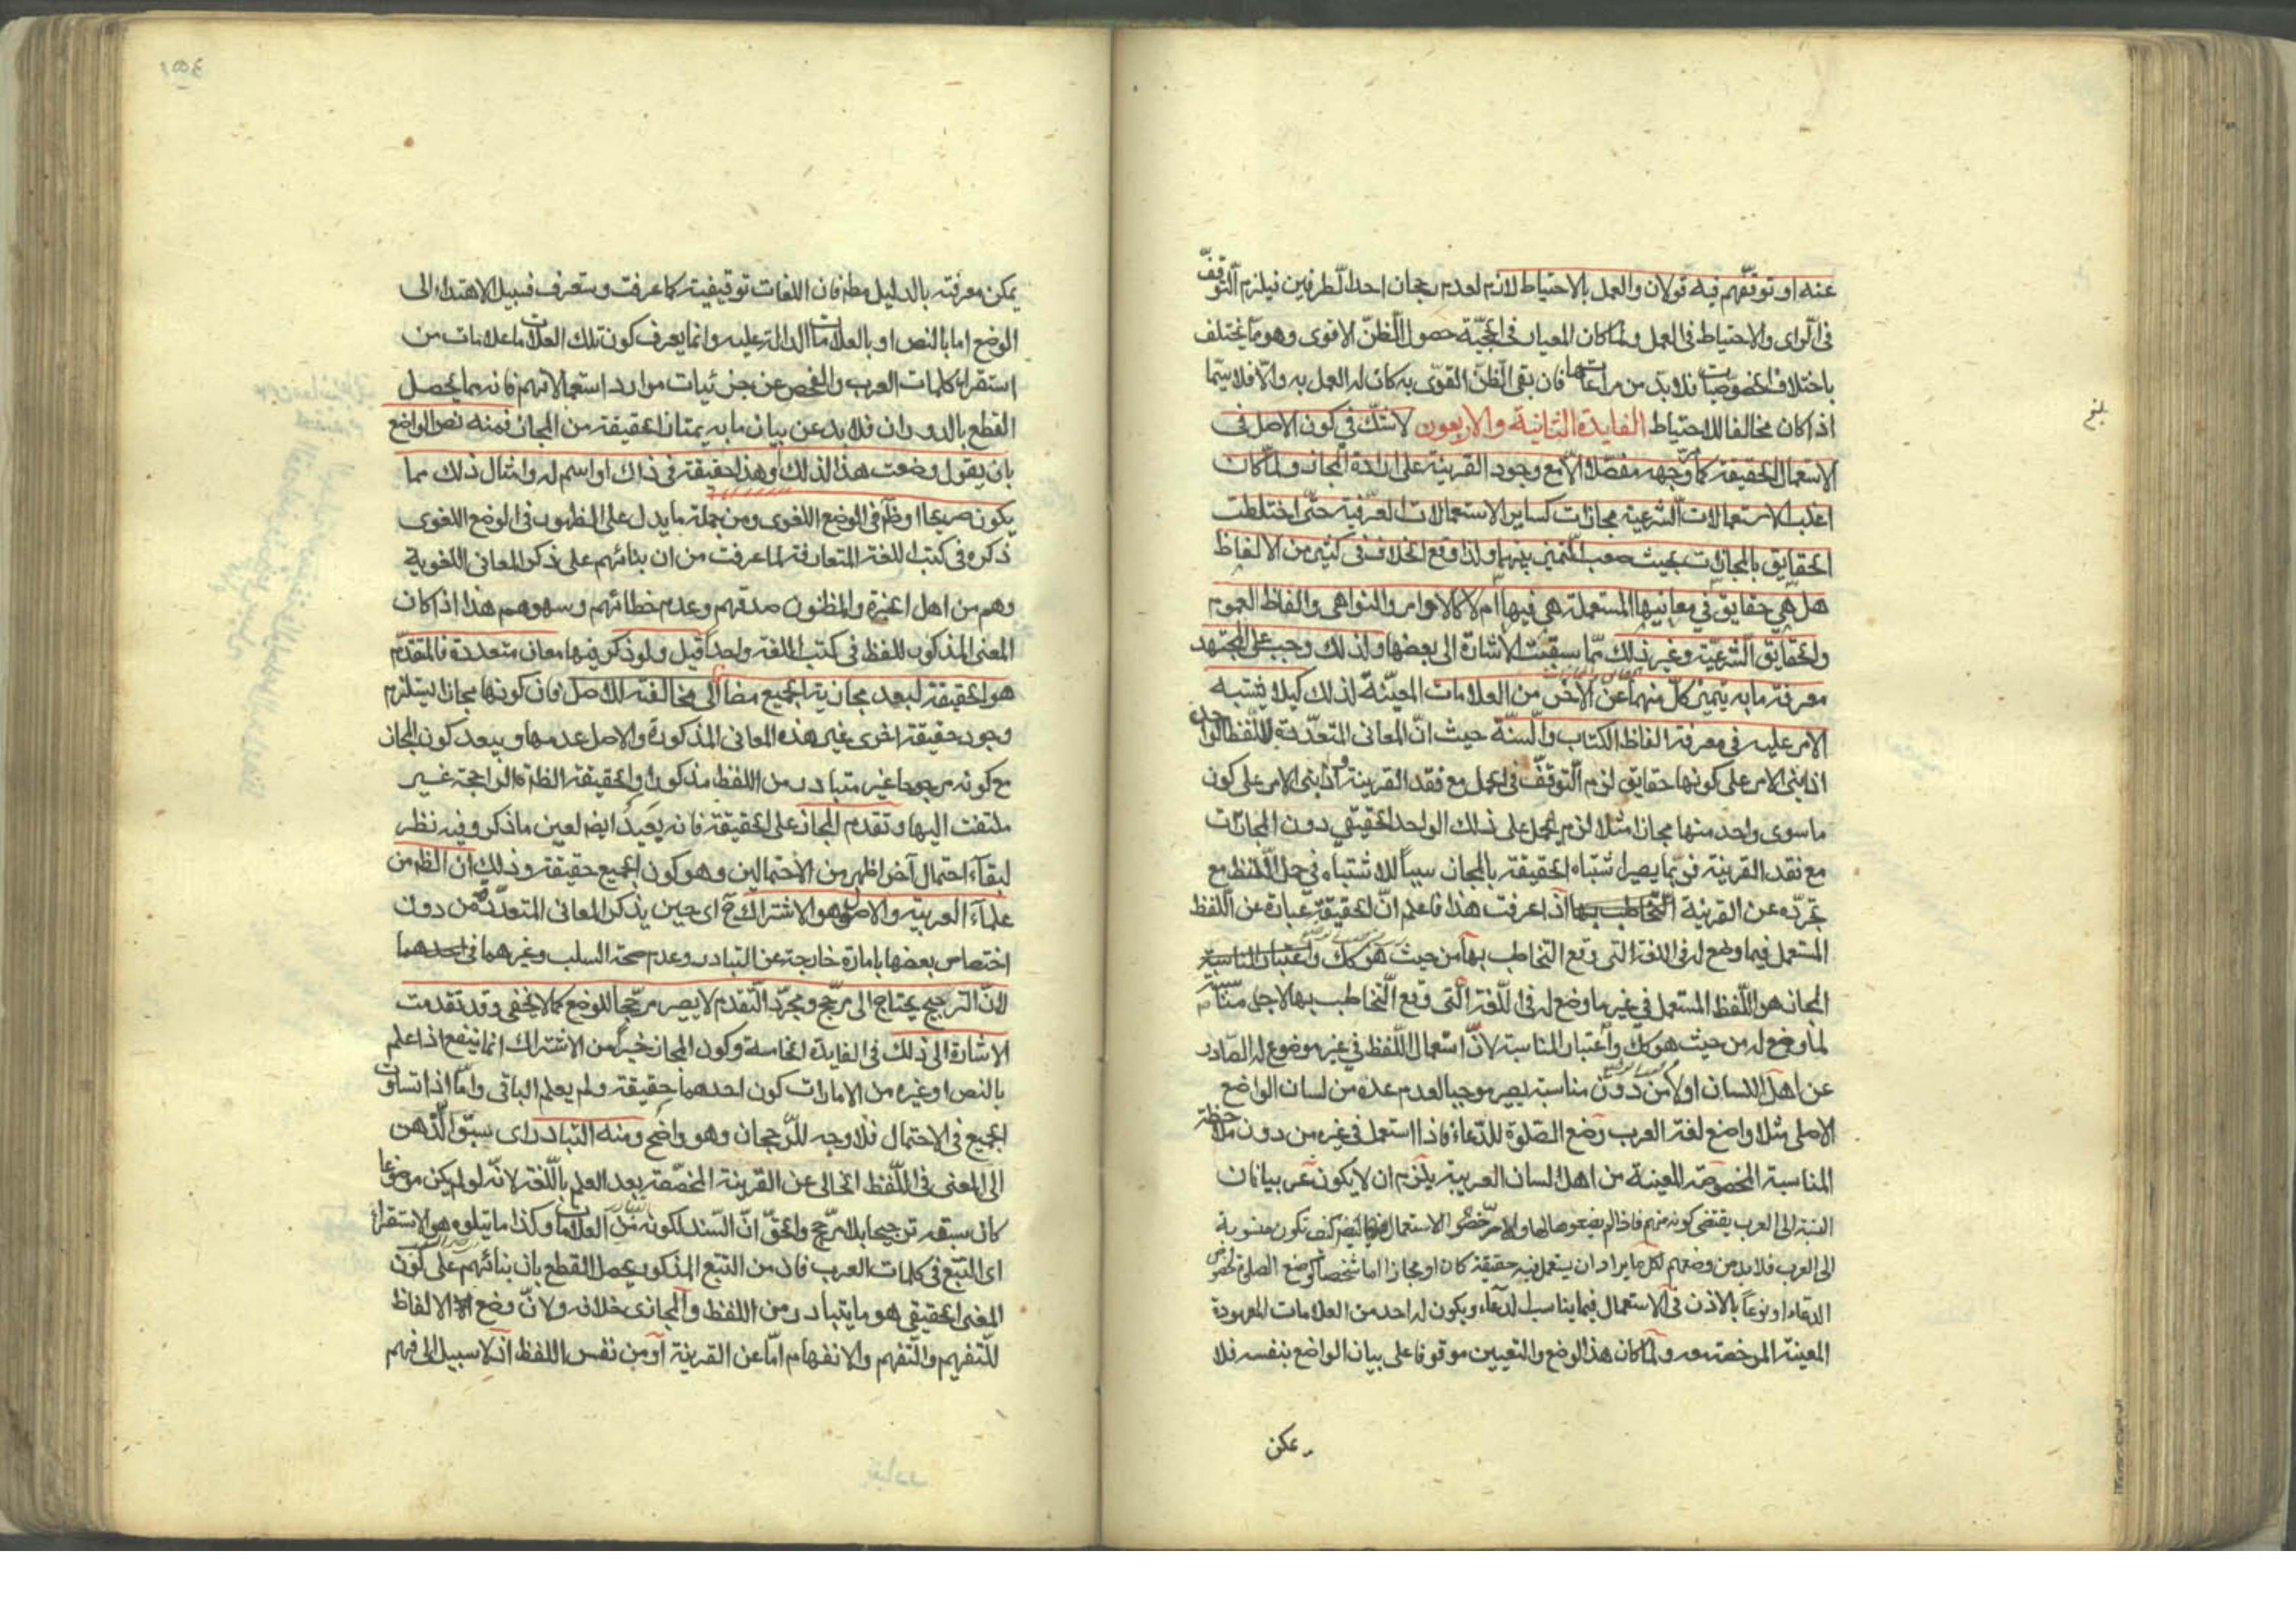 عنه او توقفهم فيه قولان والعمل بالاحتياط لازم لعدم رجحان احد الطرفين فيلزم التوقف
فى الراى والاحتياط فى العمل ولما كان المعيار فى الحجيّة حصول الظنّ الاقوى وهو مما يختلف
باختلاف الخصوصيات فلا بدّ من مراعاتها فان بقى الظنّ القوى به كان له العمل به والّا فلا سيّما
اذا كان مخالفا للاحتياط الفايدة الثانية والاربعون لا شكّ في كون الاصل فى
الاستعمال الحقيقة كما مر وجهه مفصّلا الّا مع وجود القرينة على ارادة المجاز ولما كان
اغلب الاستعمالات الشرعية مجازات كساير الاستعمالات العرفية حتّى اختلطت
الحقايق بالمجازات بحيث صعب التميز بينهما ولذا وقع الخلاف فى كثير من الالفاظ
هل هي حقايق في معانيها المستعملة هي فيها ام لا كالاوامر والنواهى والفاظ العموم
والحقايق الشرعيّة وغير ذلك ممّا سبقت الاشارة الى بعضها ولذلك وجب على المجتهد
معرفة ما به يتميز كلّ منهما عن الاخر من العلامات المعيّنة لذلك كيلا يشتبه
الامر عليه فى معرفة الفاظ الكتاب والسنّة حيث انّ المعانى المتعدّدة للّفظ الواحد
اذا بنى الامر على كونها حقايق لزم التوقف فى الحمل مع فقد القرينة واذا بنى الامر على كون
ما سوى واحد منها مجازا مثلا لزم الحمل على ذلك الواحد الحقيقي دون المجازات
مع فقد القرينة فربّما يصير اشتباه الحقيقة بالمجاز سبباً للاشتباه في حمل اللّفظ مع
تجرّده عن القرينة اذا عرفت هذا فاعلم انّ الحقيقة عبارة عن اللّفظ
المستعمل فيما وضع له فى اللغة التى وقع التخاطب بها من حيث هو كك
المجاز هو اللّفظ المستعمل في غير ما وضع له فى اللّغة الّتى وقع التّخاطب بها لاجل مناسبته
لما وضع له من حيث هو كك واعتبار المناسبة لانّ استعمال اللّفظ في غير موضوع له الصّادر
عن اهل اللسان اولا من دون مناسبة يصير موجبا لعدم عده من لسان الواضع
الاصلى مثلا واضع لغة العرب وضع الصّلوة للدّعاء فاذا استعمل فى غيره من دون ملاحظة
المناسبة المخصوصة المعينة من اهل لسان العربية يلزم ان لا يكون عربيا فان
النسبة الى العرب يقتضى كونه منهم فاذا لم يضعوها لها ولا رخّصوا الاستعمال فيها ايضا كيف تكون منسوبة
الى العرب فلا بد من وضعهم لكل ما يراد ان يستعمل فيه حقيقة كان او مجازا اما شخصا كوضع الصلوة لخصوص
الدعاء او نوعاً بالاذن فى الاستعمال فيما يناسب الدعاء ويكون له احد من العلامات المعهودة
المعينة المرخصة ولما كان هذا الوضع والتعيين موقوفا على بيان الواضع بنفسه فلا
يمكن
بلغ
يمكن معرفته بالدليل مط فان اللغات توقيفية كما عرفت وستعرف فسبيل الاهتداء الى
الوضع اما بالنص او بالعلامات الدالة عليه وانما يعرف كون تلك العلامات علامات من
استقراء كلمات العرب والفحص عن جزئيات موارد استعمالاتهم فانه بها يحصل
القطع بالدوران فلا بد عن بيان ما به يمتاز الحقيقة من المجاز فمنه نص الواضع
بان يقول وضعت هذا لذلك او هذا حقيقة فى ذاك او اسم له وامثال ذلك مما
يكون صريحا او ظاهرا فى الوضع اللغوى ومن جملة ما يدل على الظهور فى الوضع اللغوى
ذكره فى كتب اللغة المتعارفة لما عرفت من ان بنائهم على ذكر المعانى اللغوية
وهم من اهل الخبرة والمظنون صدقهم وعدم خطائهم وسهوهم هذا اذا كان
المعنى المذكور للفظ فى كتب اللغة واحداً قيل ولو ذكر فيها معان متعددة فالمقدّم
هو الحقيقة لبعد مجازية الجميع مضافا الى مخالفته للاصل فان كونها مجازا يستلزم
وجود حقيقة اخرى غير هذه المعانى المذكورة والاصل عدمها ويبعد كون المجاز
مع كونه مرجوحا غير متبادر من اللفظ مذكورا والحقيقة الظاهرة الراجحة غير
ملتفت اليها وتقدم المجاز على الحقيقة فانه بعيد ايضم لعين ما ذكر وفيه نظر
لبقاء احتمال آخر اظهر من الاحتمالين وهو كون الجميع حقيقة وذلك ان الظ من
علماء العربية والاصول هو الاشتراك ح اى حين يذكر المعانى المتعدّدة من دون
اختصاص بعضها بامارة خارجة عن التبادر وعدم صحة السلب وغيرهما فى احدهما
لانّ الترجيح يحتاج الى مرجّح ومجرّد التّقدم لا يصير مرجّحا للوضع كما لا يخفى وقد تقدمت
الاشارة الى ذلك فى الفايدة الخامسة وكون المجاز خيراً من الاشتراك انما ينفع اذا علم
بالنص او غيره من الامارات كون احدهما حقيقة ولم يعلم الباقى وامّا اذا تساوت
الجميع فى الاحتمال فلا وجه للرّجحان وهو واضح ومنه التبادر اى سبق الذّهن
الى المعنى فى اللّفظ الخالى عن القرينة المخصّصة بعد العلم باللّغة لانّه لو لم يكن موضوعا
كان سبقه ترجيحا بلا مرجّح والحقّ انّ السّند لكونه من العلامات وكذا ما يتلوه هو الاستقراء
اى التتبع فى كلمات العرب فان من التتبع المذكور يحصل القطع بان بنائهم على كون
المعنى الحقيقى هو ما يتبادر من اللفظ والمجازى خلافه ولانّ وضع الالفاظ
للتّفهيم والتّفهم والانفهام امّا عن القرينة او من نفس اللفظ اذ لا سبيل الى فهم